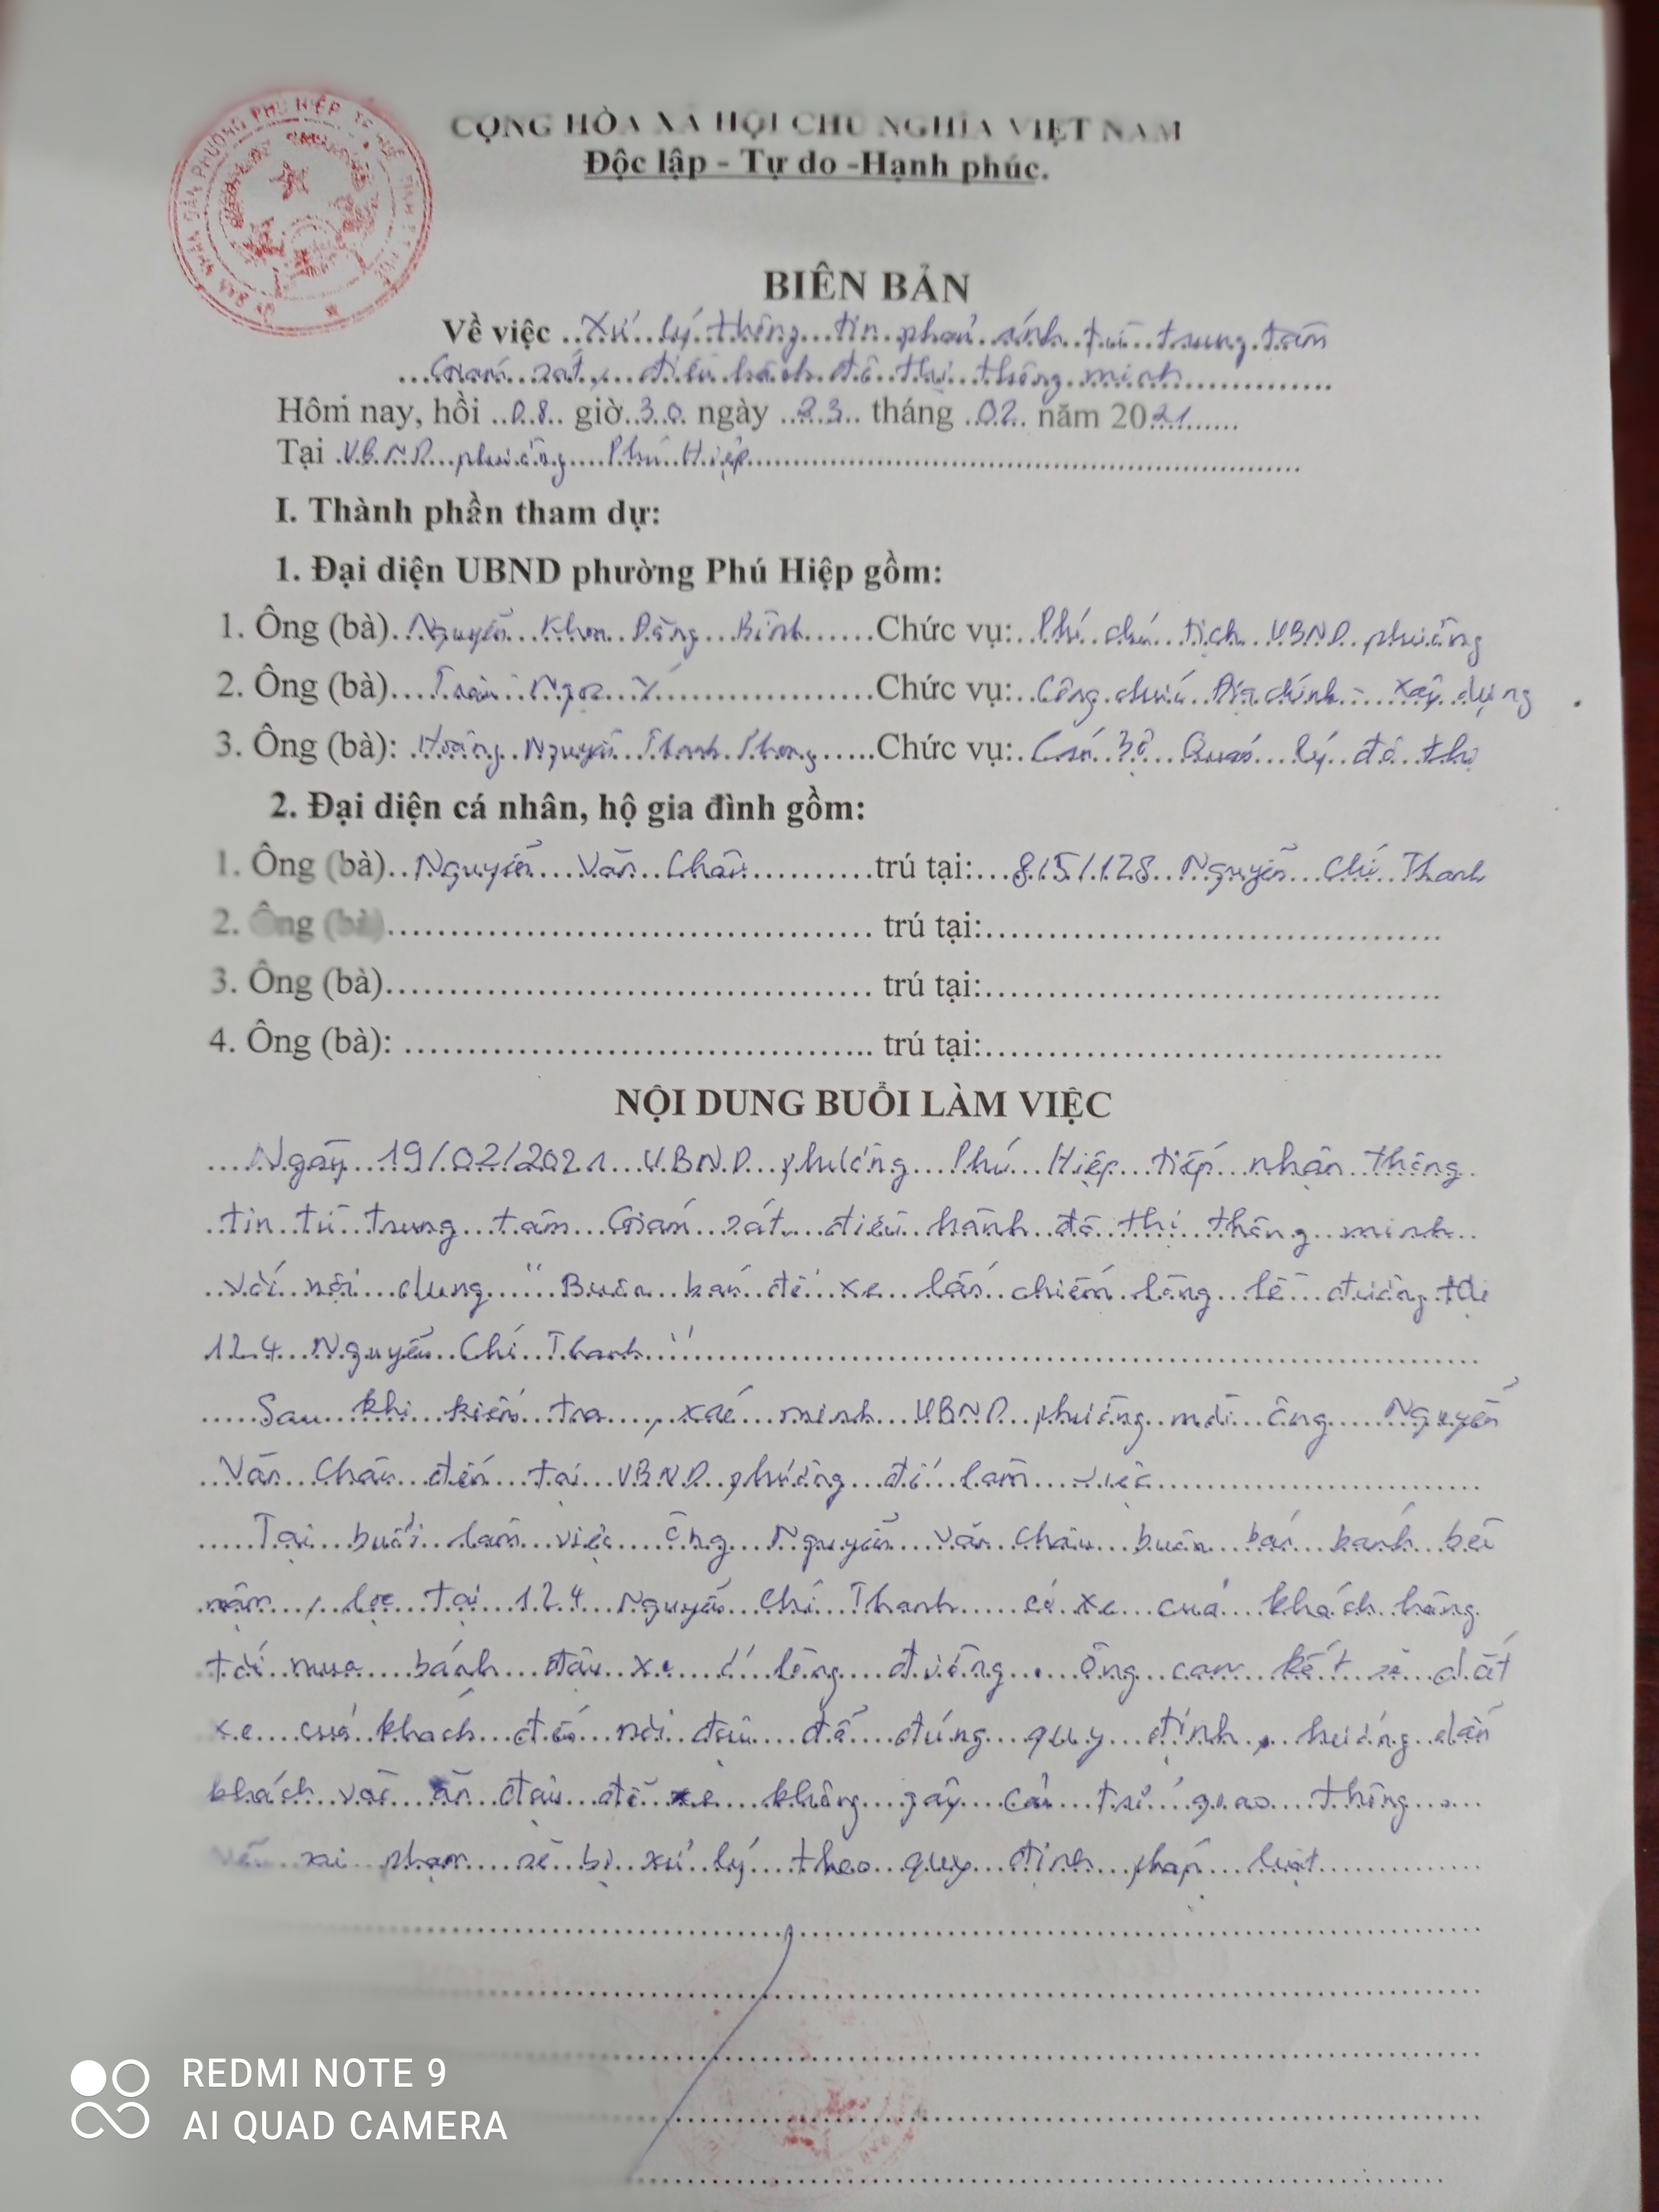 CỘNG HÒA XÃ HỘI CHỦ NGHĨA VIỆT NAM
Độc lập - Tự do -Hạnh phúc.
BIÊN BẢN
Về việc Xử lý thông tin phản ánh từ trung tâm
Giám sát, điều hành đô thị thông minh
Hôm nay, hồi 08 giờ 30 ngày 23 tháng 02 năm 2021
Tại UBND phường Phú Hiệp
I. Thành phần tham dự:
1. Đại diện UBND phường Phú Hiệp gồm:
1. Ông (bà) Nguyễn Khoa Đăng Bình Chức vụ: Phó chủ tịch UBND phường
2. Ông (bà) Trần Ngọc Ý Chức vụ: Công chức Địa chính - xây dựng
3. Ông (bà): Hoàng Nguyễn Thanh Phong Chức vụ: Cán bộ Quản lý đô thị
2. Đại diện cá nhân, hộ gia đình gồm:
1. Ông (bà) Nguyễn Văn Châu trú tại: 8/5/128 Nguyễn Chí Thanh
2. Ông (bà) trú tại:
3. Ông (bà) trú tại:
4. Ông (bà): trú tại:
NỘI DUNG BUỔI LÀM VIỆC
Ngày 19/02/2021 UBND phường Phú Hiệp tiếp nhận thông
tin từ trung tâm Giám sát điều hành đô thị thông minh
với nội dung "Buôn bán để xe lấn chiếm lòng lề đường tại
124 Nguyễn Chí Thanh"
Sau khi kiểm tra, xác minh UBND phường mời ông Nguyễn
Văn Châu đến tại UBND phường để làm việc
Tại buổi làm việc ông Nguyễn Văn Châu buôn bán bánh bèo
nậm, lọc tại 124 Nguyễn Chí Thanh có xe của khách hàng
tới mua bánh đậu xe ở lòng đường. Ông cam kết sẽ dắt
xe của khách đến nơi đậu đỗ đúng quy định, hướng dẫn
khách vào ăn đậu để xe không gây cản trở giao thông.
Nếu sai phạm sẽ bị xử lý theo quy định pháp luật
REDMI NOTE 9
AI QUAD CAMERA